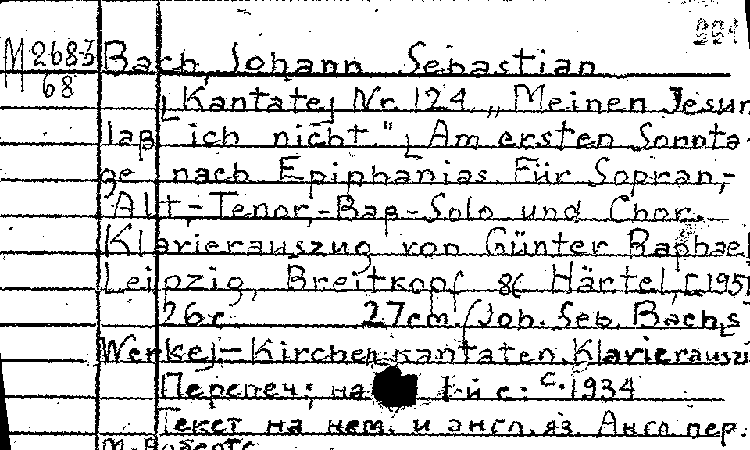 M2683 Bach, Johann Sebastian
68
[Kantate] Nr. 124 „Meinen Jesum
laß ich nicht." [Am ersten Sonnta-
ge nach Epiphanias Für Sopran,-
Alt,- Tenor,- Baß-Solo und Chor.
Klavierauszug von Günter Raphael
Leipzig, Breitkopf & Härtel, [1951
26c. 27cm. (Joh. Seb. Bachs
Werke]-Kirchenkantaten. Klavierauszü
Перепеч: на 1-й с: c. 1934
Текст на нем. и англ. яз. Англ пер.